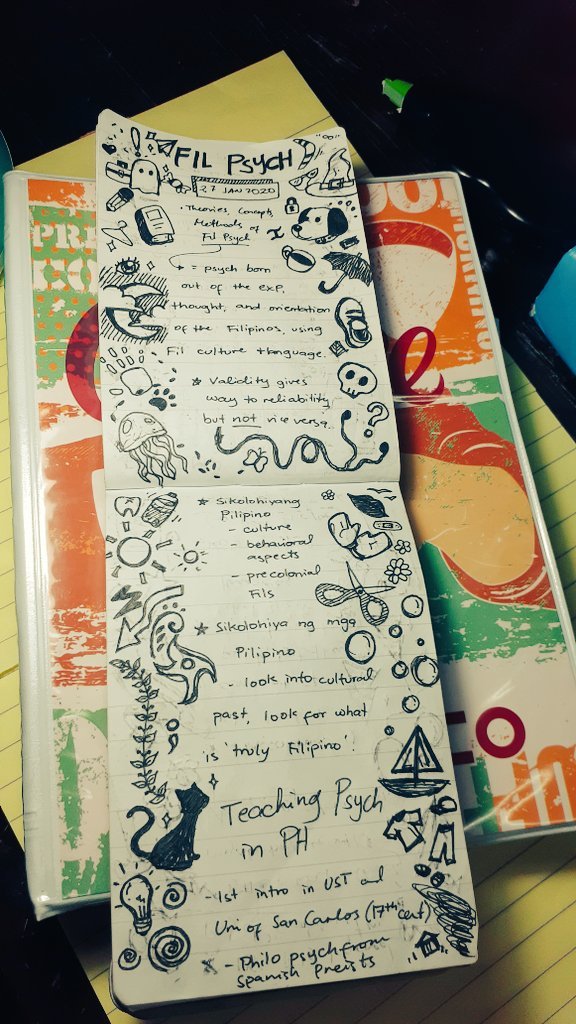 FIL PSYCH
27 JAN 2020
· Theories, Concepts,
Methods of
Fil Psych
★ = psych born
out of the exp,
thought, and orientation
of the Filipinos, using
Fil culture & language.
★ Validity gives
way to reliability
but not vice versa.
★ Sikolohiyang
Pilipino
- culture
- behavioral
aspects
- precolonial
Fils
★ Sikolohiya ng mga
Pilipino
- look into cultural
past, look for what
is 'truly Filipino'.
Teaching Psych
in PH
- 1st intro in UST and
Uni of San Carlos (17th cent)
- Philo psych from
Spanish Preists